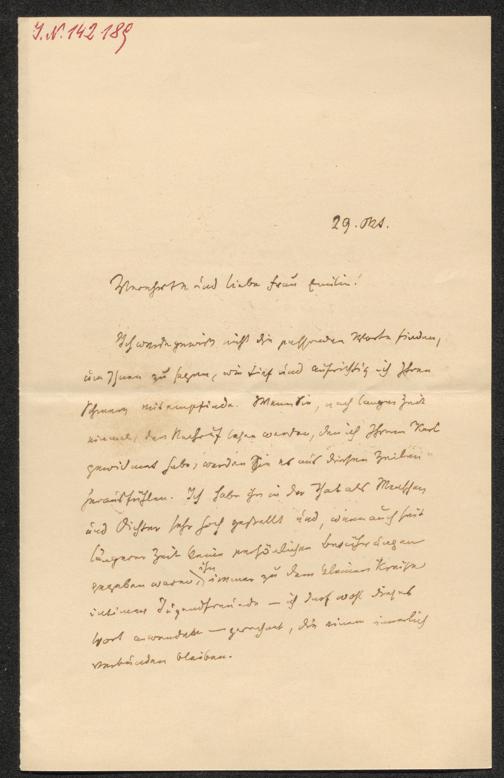 I.N. 142189
29. Okt.
Verehrte und liebe Frau Emilie!
Ich werde gewiss nicht die passenden Worte finden,
um Ihnen zu sagen, wie tief und aufrichtig ich Ihren
Schmerz mitempfinde. Wenn Sie, nach langer Zeit
einmal, den Nachruf lesen werden, den ich Ihrem Karl
gewidmet habe, werden Sie es aus diesen Zeilen
herausfühlen. Ich habe ihn in der That als Menschen
und Dichter sehr hoch gestellt und, wenn auch seit
längerer Zeit keine persönlichen Berührungen
gegeben waren, ihn immer zu dem kleinen Kreise
intimer Jugendfreunde – ich darf wohl dieses
Wort anwenden – gerechnet, die einem innerlich
verbunden bleiben.